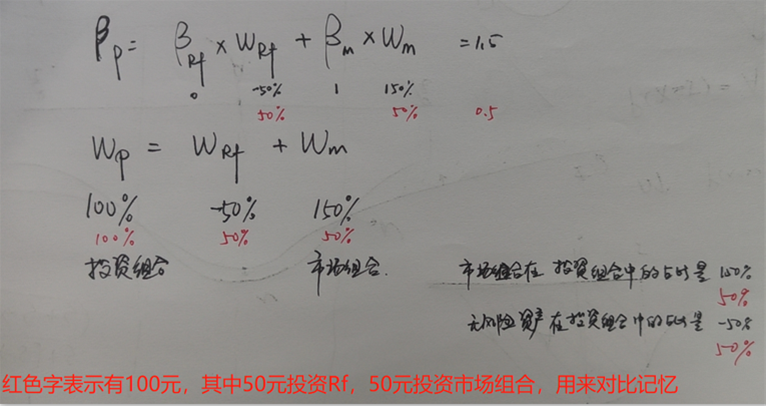 βp = βRf × WRf + βm × Wm = 1.5
0 -50% 1 150%
50% 50% 0.5
Wp = WRf + Wm
100% -50% 150%
100% 50% 50%
投资组合 市场组合.
市场组合在投资组合中的占比是 150%
50%
无风险资产在投资组合中的占比是 -50%
50%
红色字表示有100元，其中50元投资Rf，50元投资市场组合，用来对比记忆